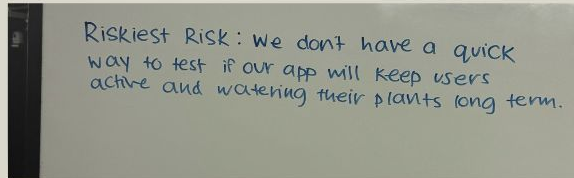 Riskiest Risk: We don't have a quick
way to test if our app will keep users
active and watering their plants long term.